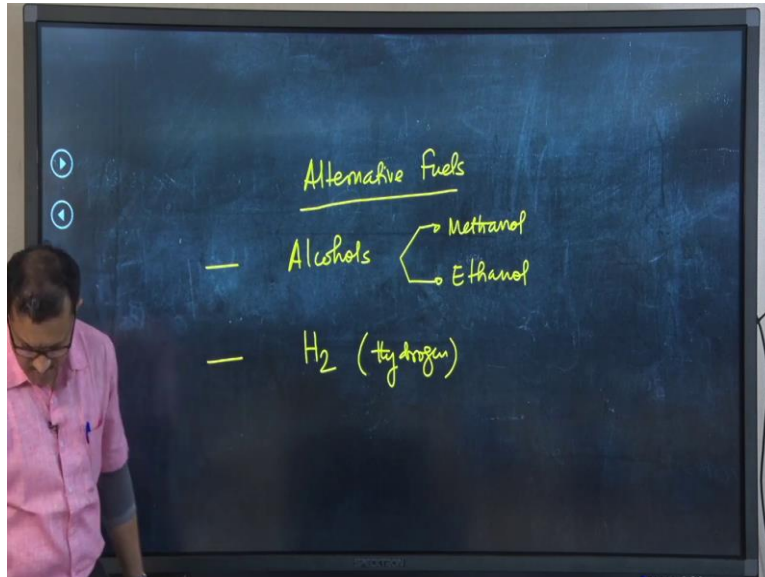 Alternative Fuels
— Alcohols
Methanol
Ethanol
— H2 (Hydrogen)